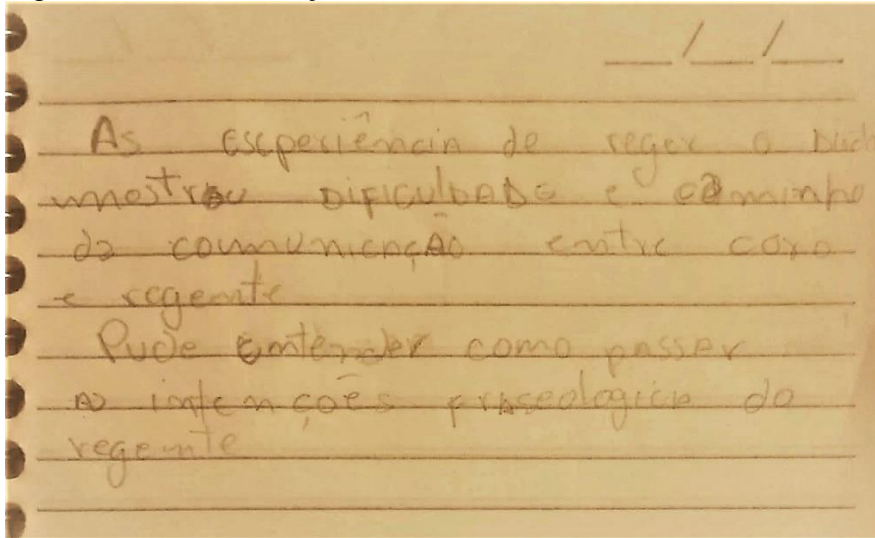 __/__/__
As escperiência de reger o
mostrou DIFICULDADE e caminho
da comunicação entre coro
e regente
Pude entender como passar
as intenções fraseologica do
regente